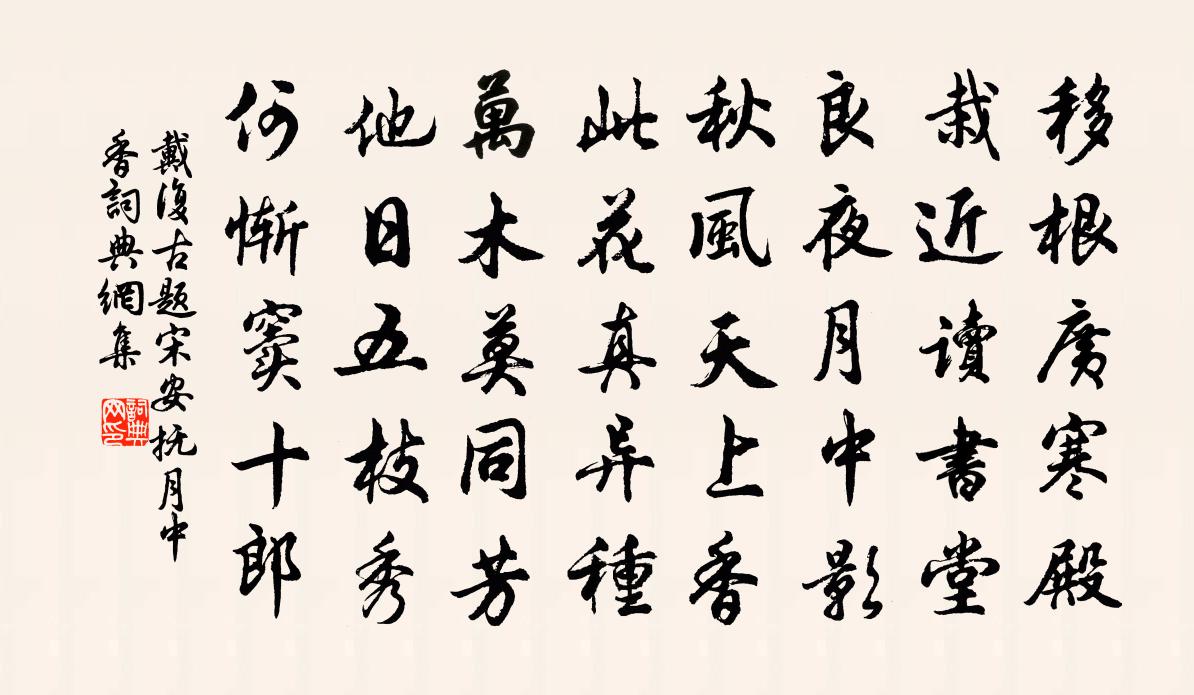 移根廣寒殿
栽近讀書堂
良夜月中影
秋風天上香
此花真异種
萬木莫同芳
他日五枝秀
何慚竇十郎
戴復古題宋安抚月中
香詞典網集
詞典网印